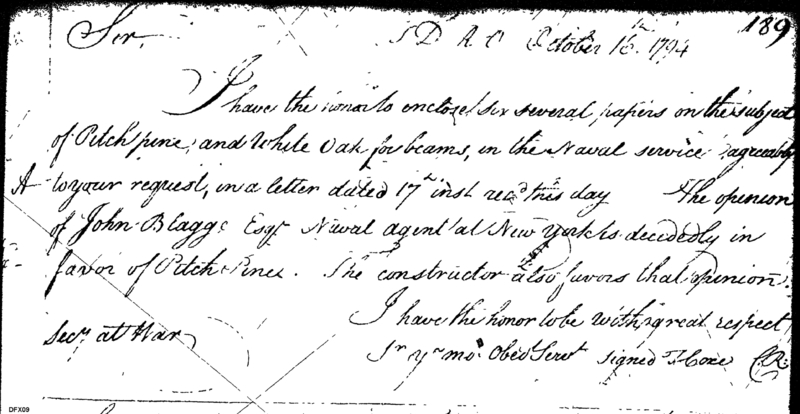 189
Sir, T D R O October 16th 1794
I have the honor to enclose six several papers on the subject
of Pitch pine, and White Oak for beams, in the Naval service agreeably
A to your request, in a letter dated 17th inst recd this day The openion
of John Blagge Esqr Naval agent at New York is decidedly in
favor of Pitch Pine. The constructor also favors that openion.
I have the honor to be with great respect
Secy at War
Sr yr mo. Obed Servt signed T Coxe C.R.
DFX09